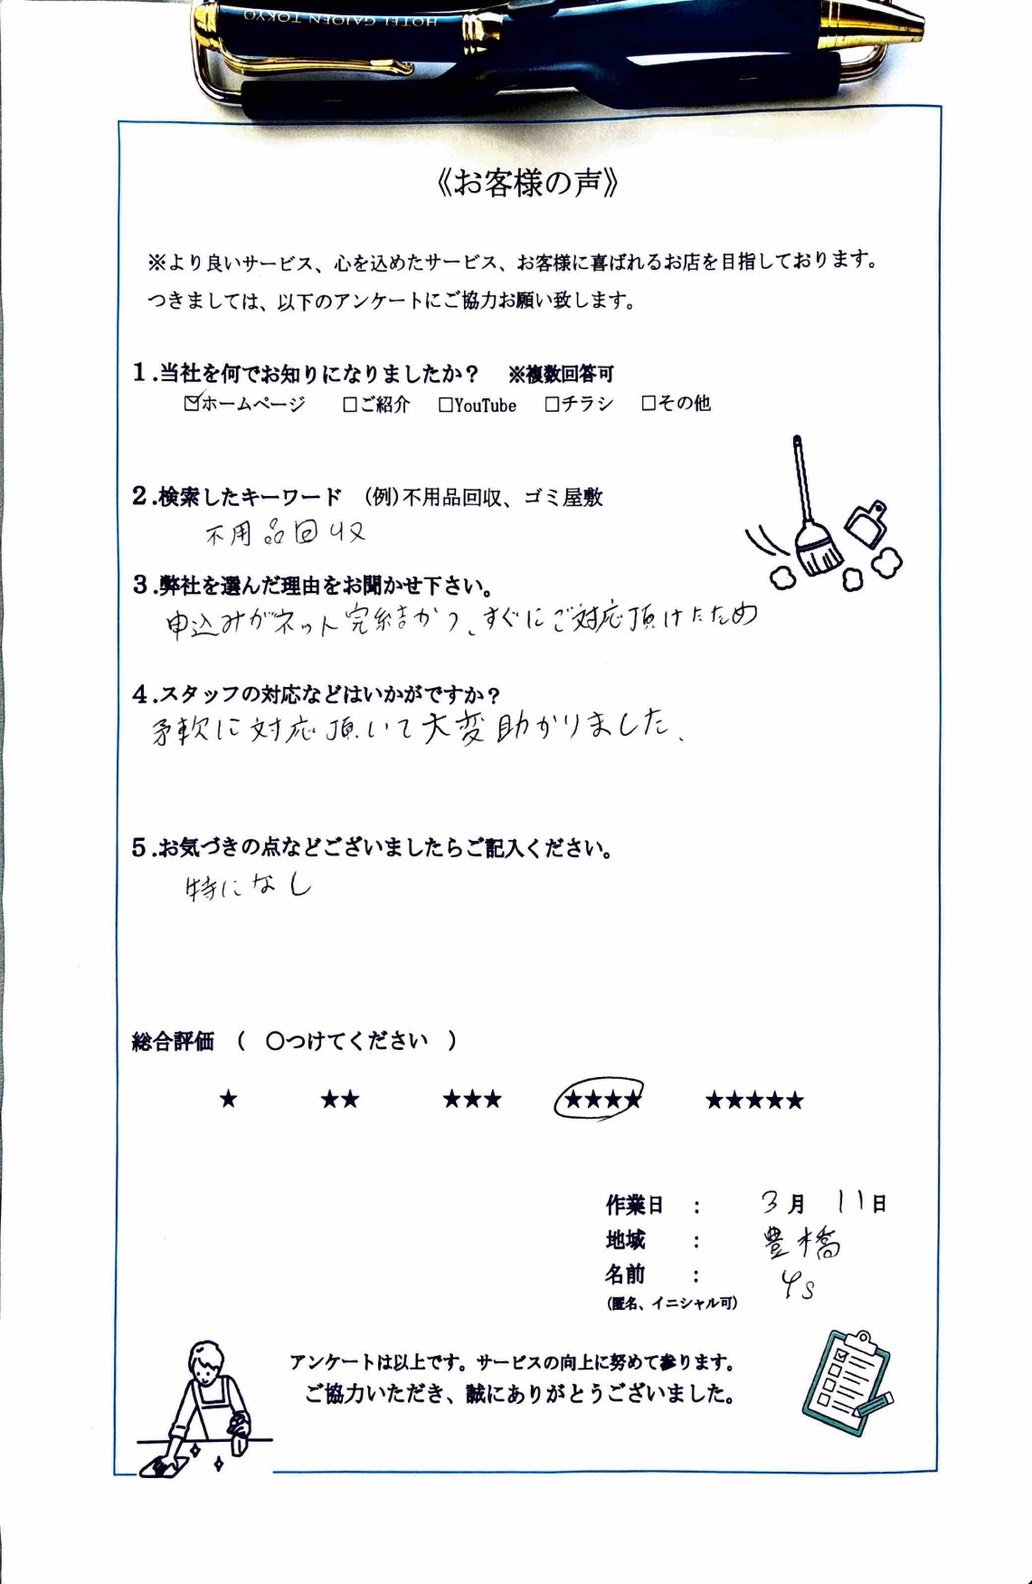 HOTEL GAJOEN TOKYO
《お客様の声》
※より良いサービス、心を込めたサービス、お客様に喜ばれるお店を目指しております。
つきましては、以下のアンケートにご協力お願い致します。
1.当社を何でお知りになりましたか？ ※複数回答可
☑ホームページ □ご紹介 □YouTube □チラシ □その他
2.検索したキーワード (例)不用品回収、ゴミ屋敷
不用品回収
3.弊社を選んだ理由をお聞かせ下さい。
申込みがネット完結かつ、すぐにご対応頂けたため
4.スタッフの対応などはいかがですか？
柔軟に対応頂いて大変助かりました、
5.お気づきの点などございましたらご記入ください。
特になし
総合評価 ( 〇つけてください )
★ ★★ ★★★ ★★★★ ★★★★★
作業日 : 3月 11日
地域 : 豊橋
名前 : YS
(匿名、イニシャル可)
アンケートは以上です。サービスの向上に努めて参ります。
ご協力いただき、誠にありがとうございました。